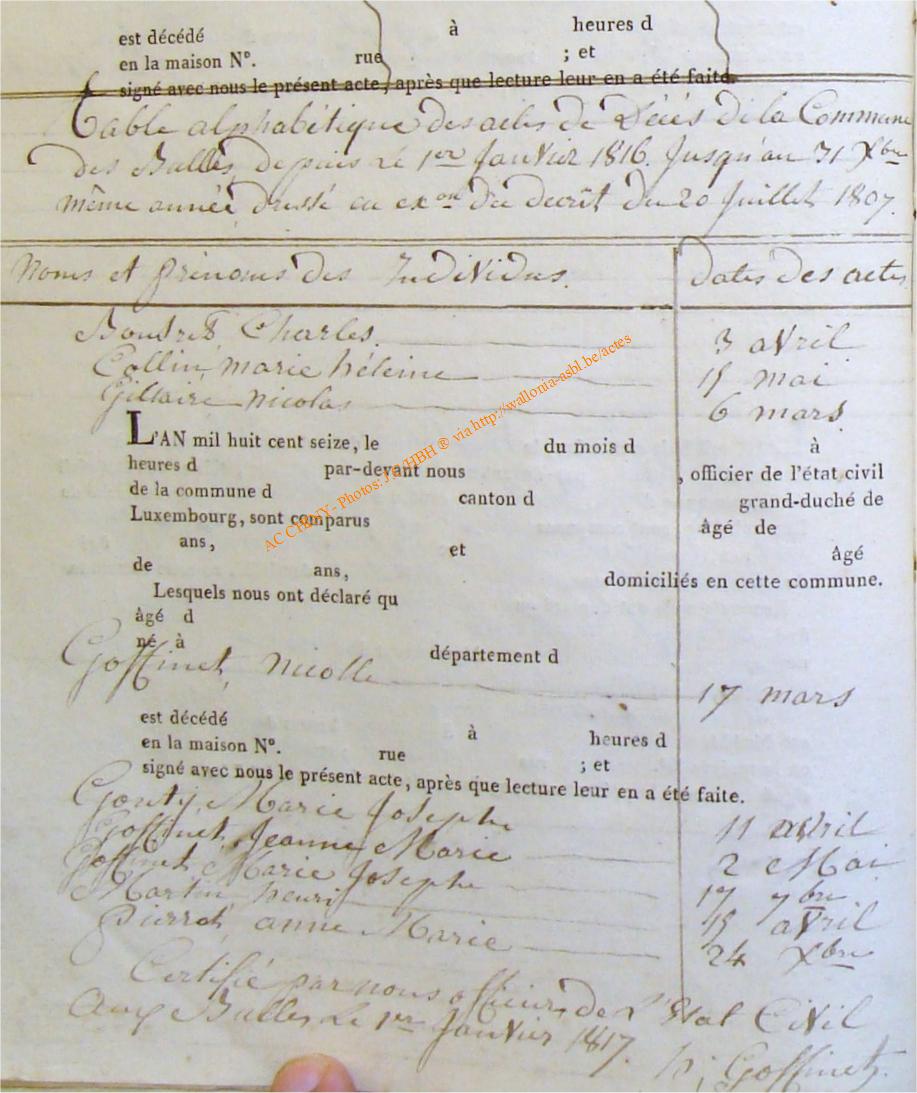 est décédé à heures d
en la maison N°. rue ; et
signé avec nous le présent acte, après que lecture leur en a été faite.
Table alphabétique des actes de Décès de la Commune
des Bulles depuis le 1er Janvier 1816. Jusqu'au 31 Xbre
même année dressé en exon du decret du 20 Juillet 1807.
Noms et prénoms des Individus. Dates des actes
Charles. 3 avril
Collin, marie héleine 15 mai
Giltaire nicolas 6 mars
L'AN mil huit cent seize, le du mois d à
heures d par-devant nous , officier de l'état civil
de la commune d canton d grand-duché de
Luxembourg, sont comparus âgé de
ans, et âgé
de ans, domiciliés en cette commune.
Lesquels nous ont déclaré qu
âgé d
né à département d
Goffinet, Nicolle 17 mars
est décédé à heures d
en la maison N°. rue ; et
signé avec nous le présent acte, après que lecture leur en a été faite.
Gouty, Marie Josephe 11 avril
Goffinet, Jeanne Marie 2 Mai
Goffinet, Marie Josephe 17 7bre
Martin, henri 15 avril
Pierret, anne Marie 24 Xbre
Certifié par nous officier de l'Etat Civil
Aux Bulles le 1er Janvier 1817.
Goffinet.
AC CHINY - Photos: J.P. HBH ® via http://wallonia-asbl.be/actes